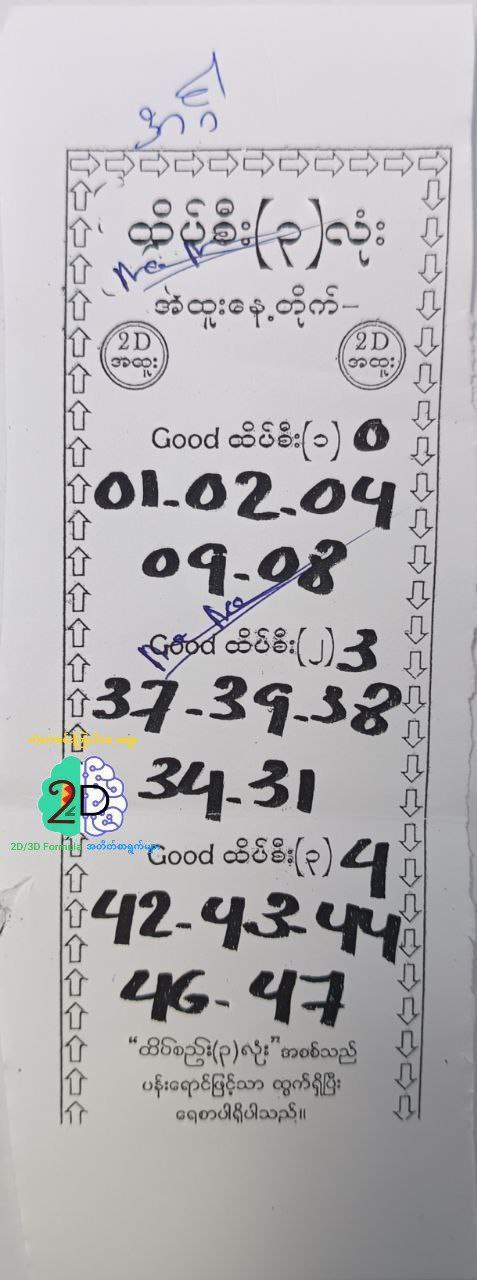 ထိပ်စီး(၃)လုံး
အထူးနေ့တိုက်-
2D
အထူး
2D
အထူး
Good ထိပ်စီး(၁) 0
01-02-04
09-08
Good ထိပ်စီး(၂) 3
37-39-38
34-31
2D
2D/3D Formula အတိတ်စာရွက်များ
Good ထိပ်စီး(၃) 4
42-43-44
46-47
“ထိပ်စည်း(၃)လုံး” အစစ်သည်
ပန်းရောင်ဖြင့်သာ ထွက်ရှိပြီး
ရေစာပါရှိပါသည်။